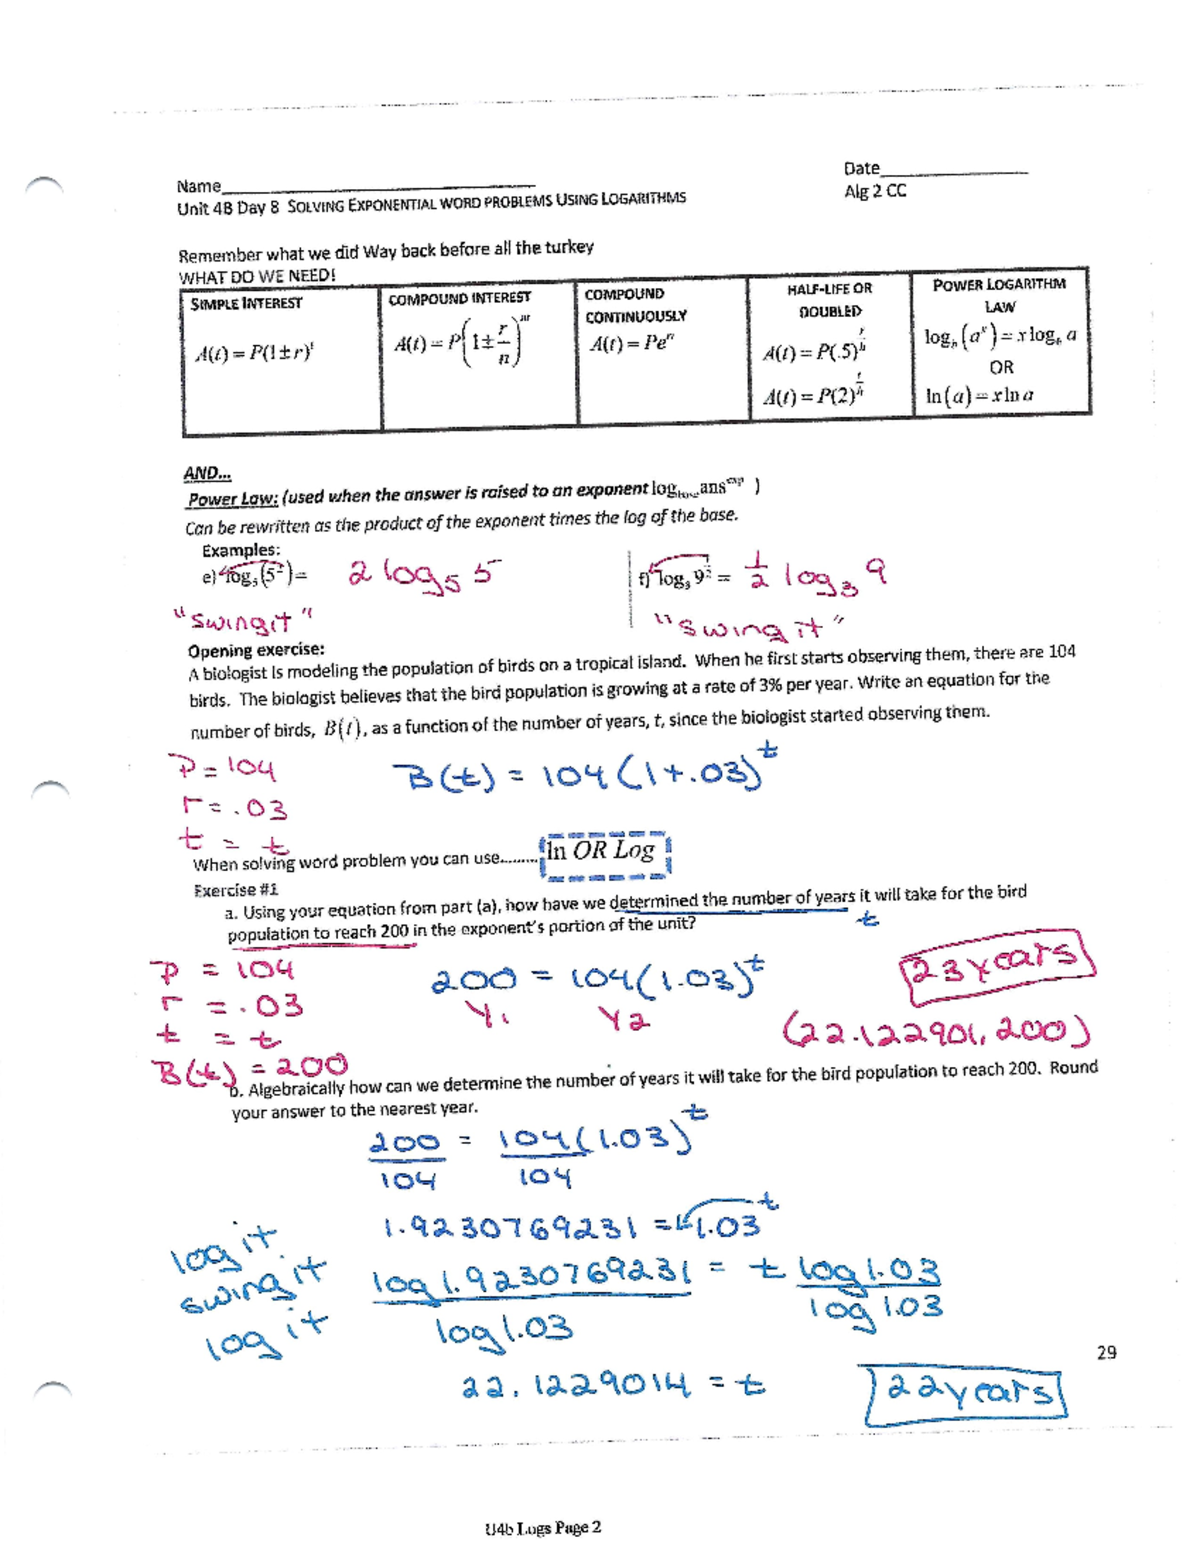 Name____________________ Date____________________
Unit 4B Day 8 SOLVING EXPONENTIAL WORD PROBLEMS USING LOGARITHMS Alg 2 CC
Remember what we did Way back before all the turkey
WHAT DO WE NEED!
SIMPLE INTEREST
A(t) = P(1 ± r)^t
COMPOUND INTEREST
A(t) = P(1 ± r/n)^nt
COMPOUND
CONTINUOUSLY
A(t) = Pe^rt
HALF-LIFE OR
DOUBLED
A(t) = P(.5)^(t/h)
A(t) = P(2)^(t/h)
POWER LOGARITHM
LAW
log_b(a^x) = x log_b a
OR
ln(a) = x ln a
AND...
Power Law: (used when the answer is raised to an exponent log_base ans^exp )
Can be rewritten as the product of the exponent times the log of the base.
Examples:
e) log₅(5²) = 2 log₅ 5
f) log₃ 9^(1/2) = 1/2 log₃ 9
"swing it"
"swing it"
Opening exercise:
A biologist is modeling the population of birds on a tropical island. When he first starts observing them, there are 104
birds. The biologist believes that the bird population is growing at a rate of 3% per year. Write an equation for the
number of birds, B(t), as a function of the number of years, t, since the biologist started observing them.
P = 104
r = .03
t = t
B(t) = 104(1+.03)^t
When solving word problem you can use......... ln OR Log
Exercise #1
a. Using your equation from part (a), how have we determined the number of years it will take for the bird
t
population to reach 200 in the exponent's portion of the unit?
P = 104
r = .03
t = t
B(t) = 200
200 = 104(1.03)^t
Y1 Y2
23 years
(22.122901, 200)
b. Algebraically how can we determine the number of years it will take for the bird population to reach 200. Round
your answer to the nearest year.
200/104 = 104(1.03)^t/104
1.9230769231 = 1.03^t
log it
swing it
log it
log 1.9230769231/log 1.03 = t log 1.03/log 1.03
22.1229014 = t
22 years
29
U4b Logs Page 2